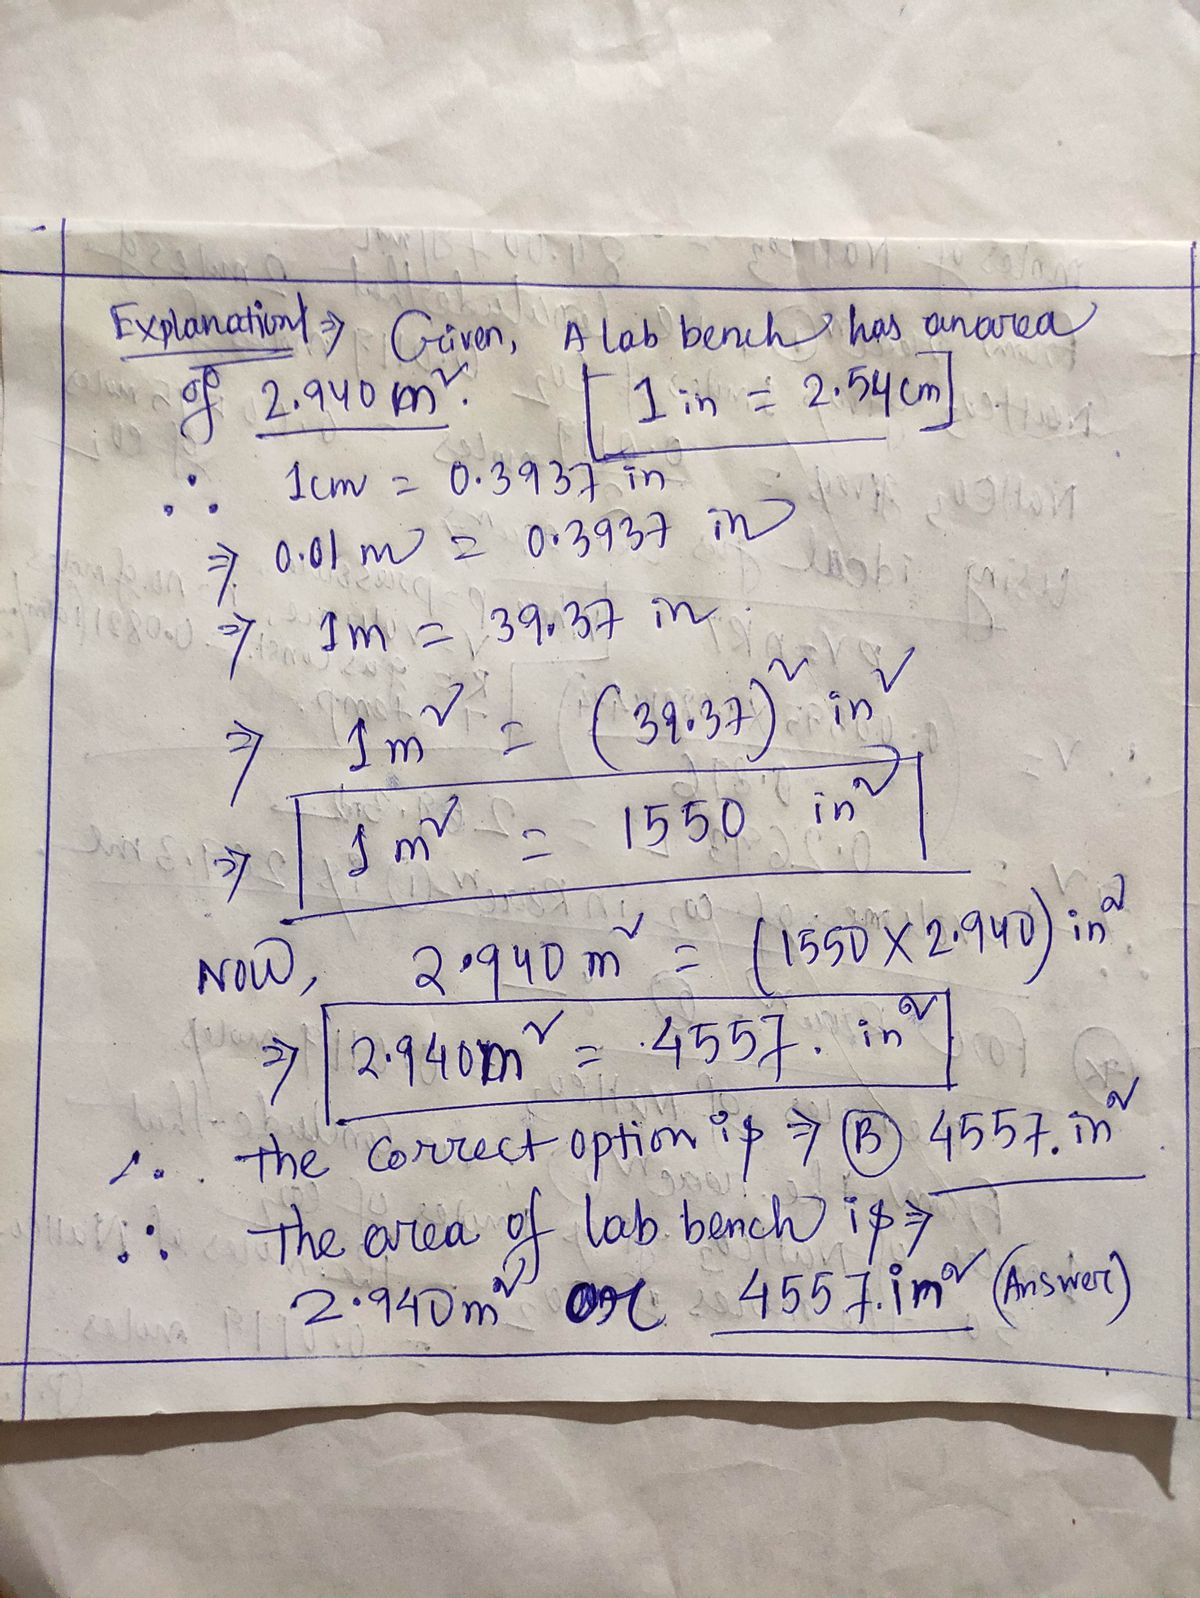 Explanation ⇒ Given, A lab bench has an area
of 2.940 m². [1 in = 2.54 cm]
∴ 1cm = 0.3937 in
⇒ 0.01 m = 0.3937 in
⇒ 1m = 39.37 in
⇒ 1m² = (39.37)² in²
⇒ 1m² = 1550 in²
Now, 2.940 m² = (1550 × 2.940) in²
⇒ 2.940m² = 4557. in²
∴ The correct option is ⇒ (B) 4557. in²
∴ The area of lab bench is ⇒
2.940m² or 4557. im² (Answer)